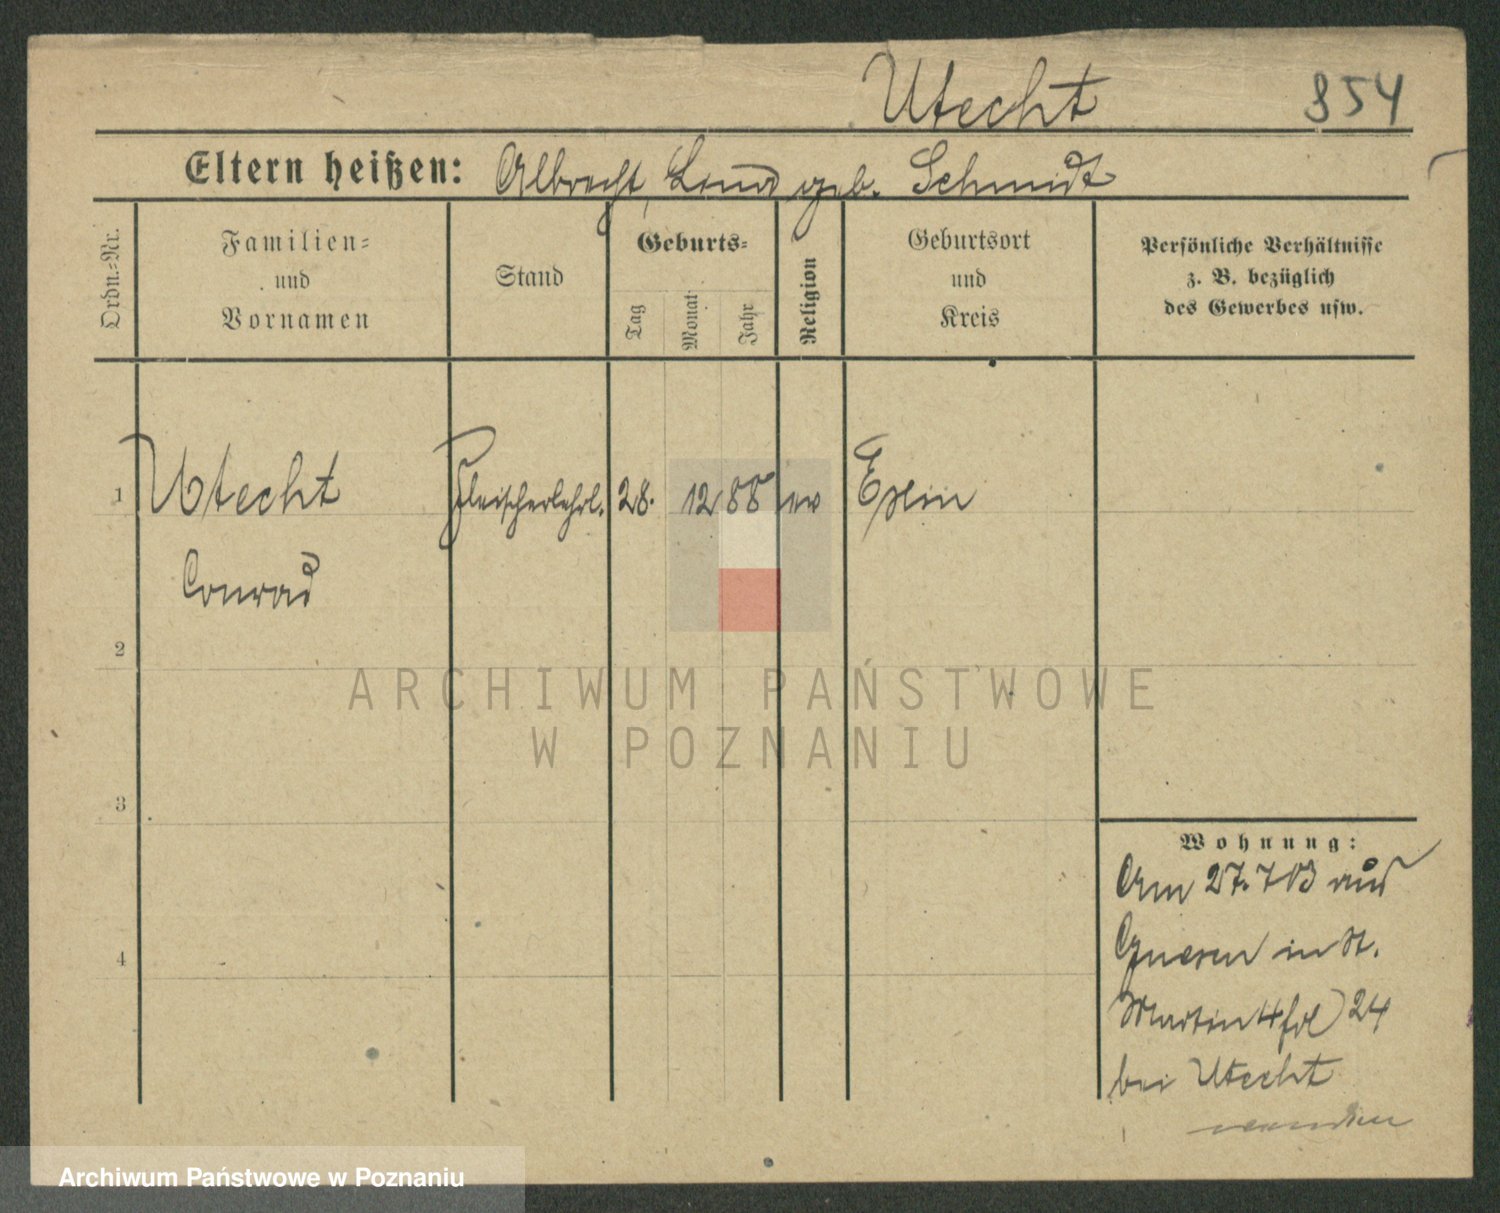 Utecht 854
Eltern heißen: Albrecht, geb. Schmidt
Ordn.=Nr.
Familien=
und
Vornamen
Stand
Geburts=
Tag
Monat
Jahr
Religion
Geburtsort
und
Kreis
Persönliche Verhältnisse
z. B. bezüglich
des Gewerbes usw.
1 Utecht Fleischerlehrl. 28. 12 88 ev Exin
Conrad
2
3
4
Wohnung:
Am 27. 7 03 aus
Gnesen in St.
Martin 24
bei Utecht
wenden
ARCHIWUM PAŃSTWOWE
W POZNANIU
Archiwum Państwowe w Poznaniu